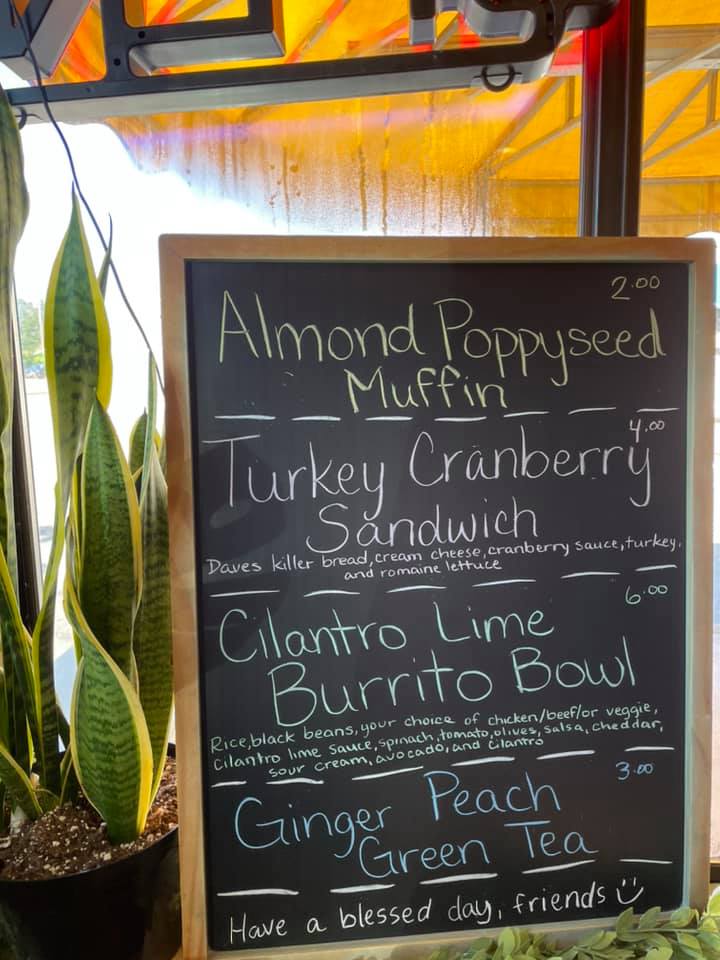 2.00
Almond Poppyseed
Muffin
4.00
Turkey Cranberry
Sandwich
Daves killer bread, cream cheese, cranberry sauce, turkey,
and romaine lettuce
6.00
Cilantro Lime
Burrito Bowl
Rice, black beans, your choice of chicken/beef/or veggie,
Cilantro lime sauce, spinach, tomato, olives, salsa, cheddar,
sour cream, avocado, and cilantro
3.00
Ginger Peach
Green Tea
Have a blessed day, friends